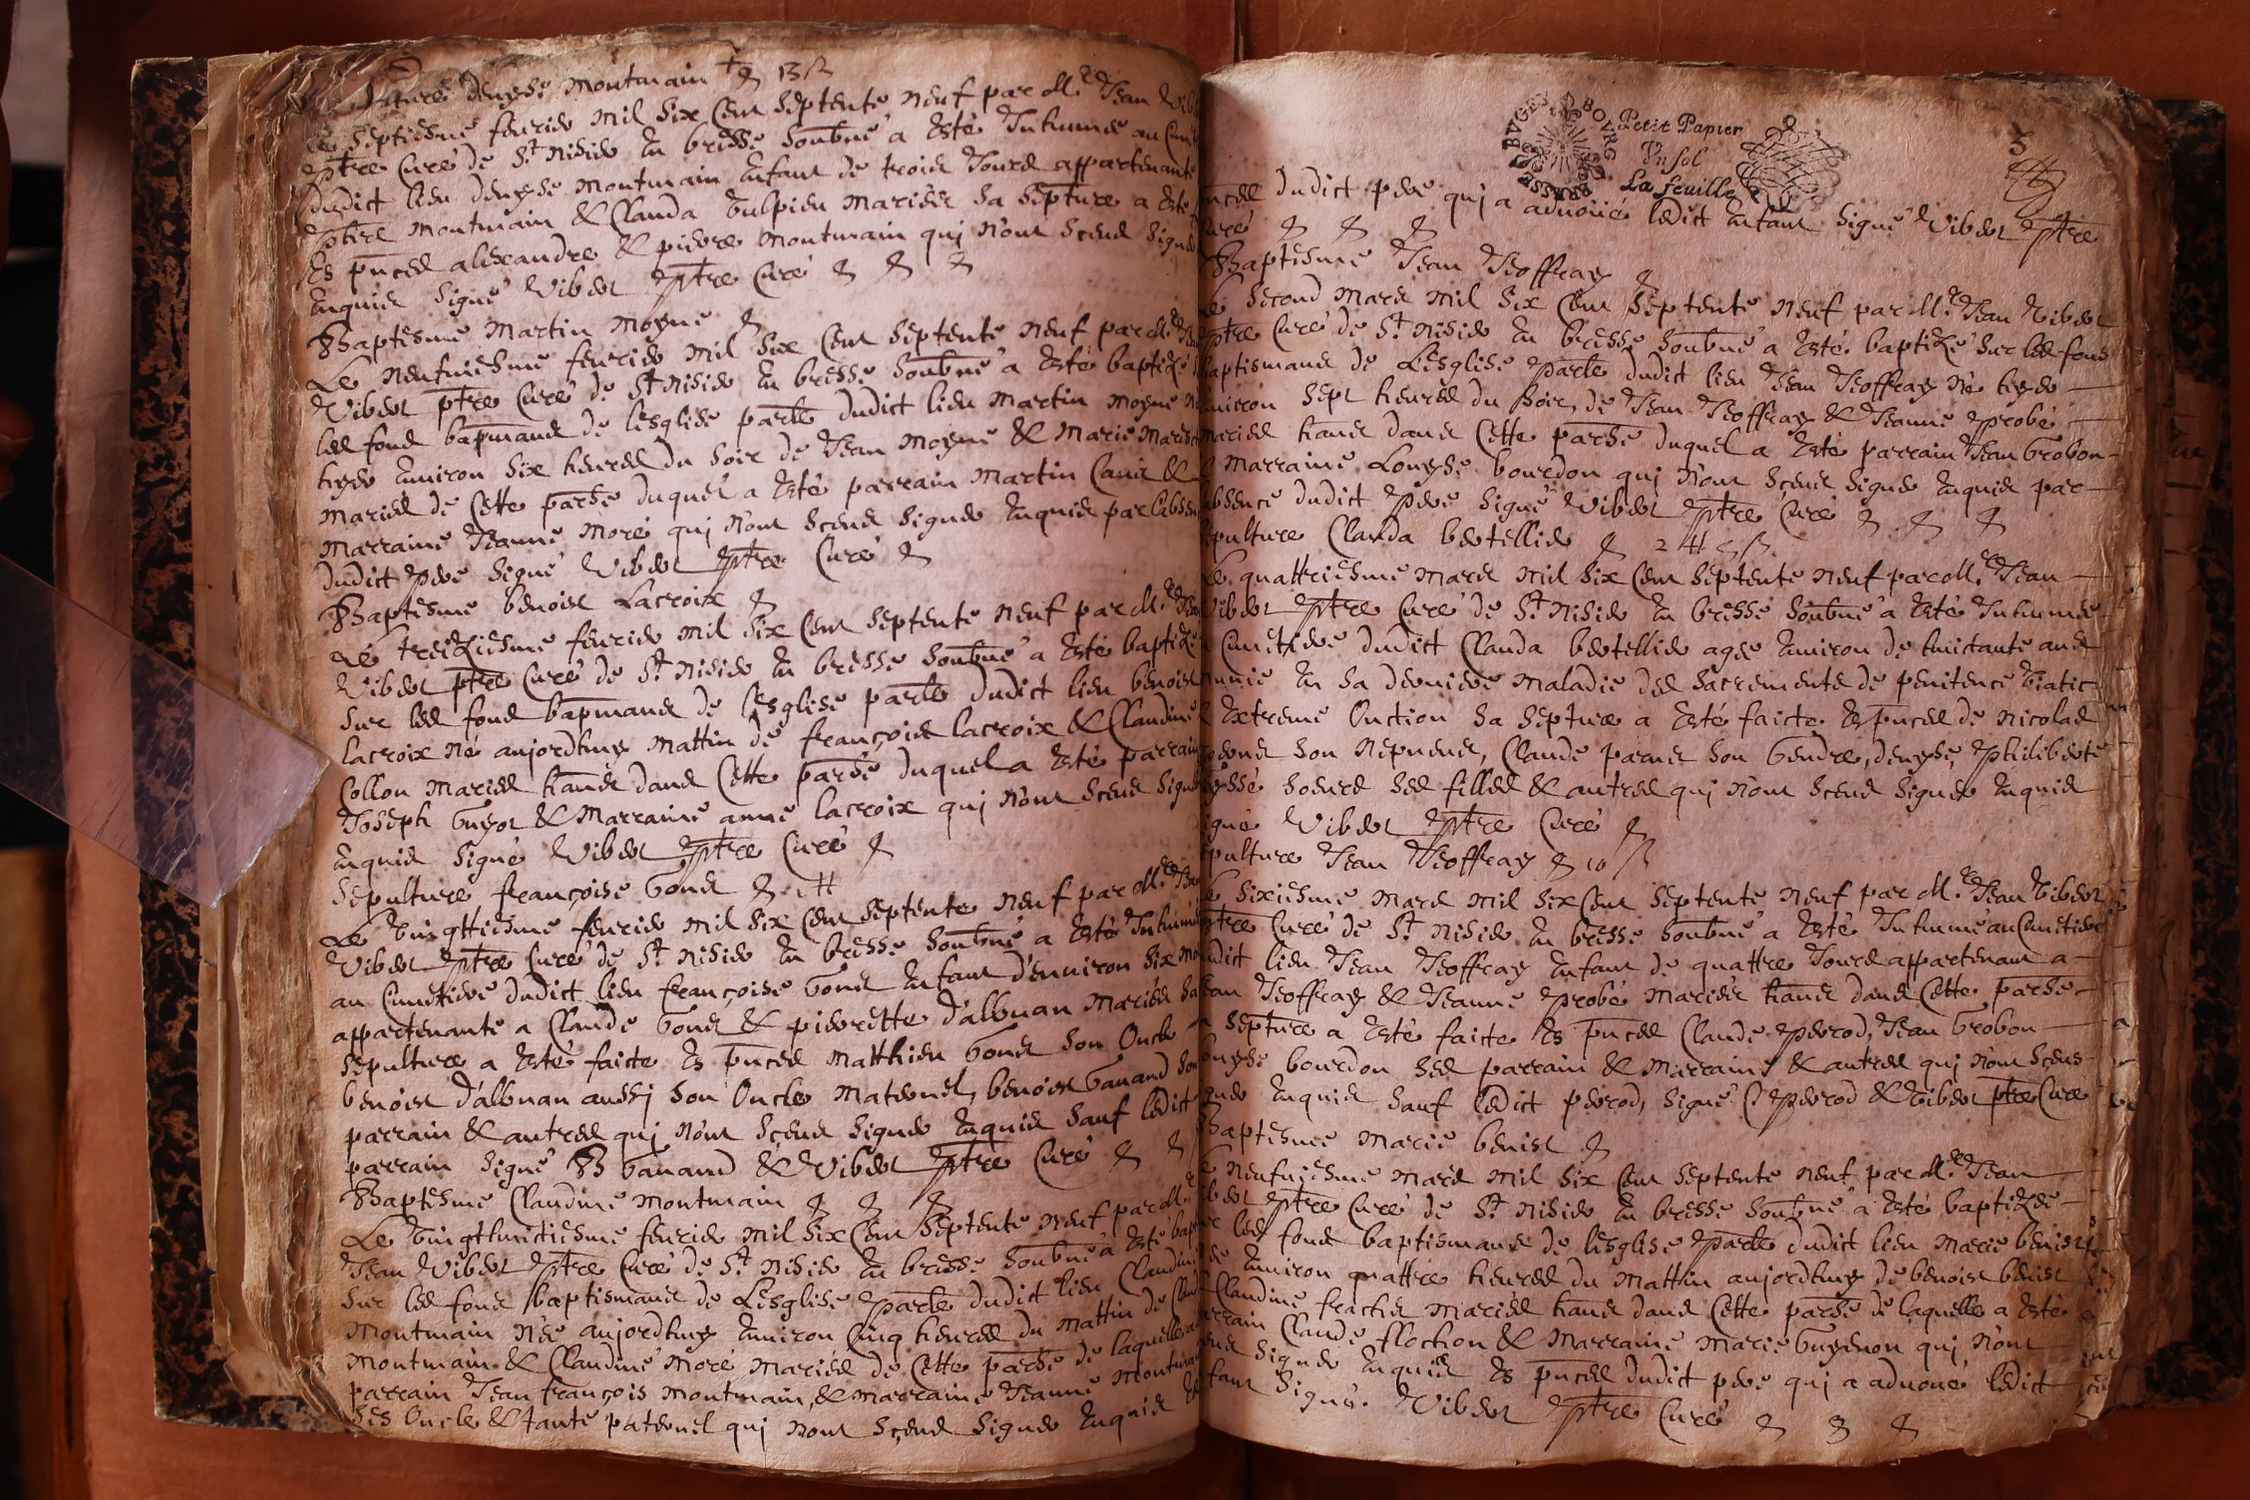 Sepulture denyse montmain 13 s
Le septiesme feurier mil six cent septente neuf par Mre Jean Vib
ptre Curé de St nisier En bresse soubné a Esté Inhumée au Cime
dudict lieu denyse montmain Enfant de trois Jours appartenante
montmain & Clauda Vulpieu mariés sa Septure a Esté
Es pnces alexandre & pierre montmain qui n'ont sceus signer
Enquis signé Viber ptre Curé
Baptesme martin moyne
Le neufuiesme feurier mil six cent septente neuf par Mre
Viber ptre Curé de St nisier En bresse soubné a Esté baptizé
les fons bapmaus de lesglise parle dudict lieu martin moyne
hyer Enuiron six heures du soir de Jean moyne & Marie
mariés de Cette parse duquel a Esté parrain martin &
marraine Jeanne moré qui n'ont sceus signer Enquis par l'absen
dudict pere signé Viber ptre Curé
Baptesme benoist Lacroix
Le treiziesme feurier mil six cent septente neuf par Mre
Viber ptre Curé de St nisier En bresse soubné a Esté baptizé
sur les fons bapmaus de lesglise parle dudict lieu benoist
lacroix né aujordhuy mattin de françois lacroix & Claudine
Collon mariés hans dans Cette parse duquel a Esté parrain
Joseph Guyot & marraine anne lacroix qui n'ont sceus signer
Enquis signé Viber ptre Curé
Sepulture françoise Gons
Le Vingttiesme feurier mil six cent septente neuf par Mre
Viber ptre Curé de St nisier En bresse soubné a Esté Inhumée
au Cimetiere dudict lieu françoise Gons Enfant d'enuiron six mo
appartenante a Claude Gons & pierrette d'albuan mariés sa
sepulture a Esté faicte Es pnces matthieu Gons son Oncle
benoist d'albuan aussj son Oncle maternel, benoist Gauand son
parrain & autres qui n'ont sceus signer Enquis sauf ledict
parrain signé B Gauand & Viber ptre Curé
Baptesme Claudine montmain
Le Vingthuictiesme feurier mil six cent septente neuf par Mre
Jean Viber ptre Curé de St nisier En bresse soubné a Esté bap
sur les fons baptismaus de Lesglise parle dudict lieu Claudine
montmain née aujordhuy Enuiron Cinq heures du mattin de
montmain & Claudine moré mariés de Cette parse de laquelle a
parrain Jean françois montmain, & marraine Jeanne montma
ses Oncle & tante paternel qui nont sceus signer Enquis
BVGEY BOVRG BRESSE
Petit Papier
Vn sol
La feuille
3
pnces dudict pere qui a aduoüé ledict Enfant signé Viber ptre
Curé
Baptesme Jean Jeoffray
Le second mars mil six cent septente neuf par Mre Jean Viber
ptre Curé de St nisier En bresse soubné a Esté baptizé sur les fons
baptismaus de Lesglise parle dudict lieu Jean Jeoffray né hyer
enuiron sept heures du soir, de Jean Jeoffray & Jeanne probé
mariés hans dans Cette parse duquel a Esté parrain Jean Grobon
& marraine Louyse bourdon qui n'ont sceus signer Enquis par
absence dudict pere signé Viber ptre Curé
Sepulture Clauda bertellier
Le quattriesme mars mil six cent septente neuf par Mre Jean
Viber ptre Curé de St nisier En bresse soubné a Esté Inhumée
Cimetiere dudict Clauda bertellier agee Enuiron de huictante ans
munie En sa derniere maladie des sacrements de penitence Viatic
& Extreme Onction sa Septure a Esté faicte Es pnces de nicolas
son nepueus, Claude son Gendre, denyse, philiberte
soeurs ses filles & autres qui n'ont sceus signer Enquis
signé Viber ptre Curé
Sepulture Jean Jeoffray 10 s
Le sixiesme mars mil six cent septente neuf par Mre Jean Viber
ptre Curé de St nisier En bresse soubné a Esté Inhumé au Cimetiere
dudict lieu Jean Jeoffray Enfant de quattre Jours appartenant a
Jean Jeoffray & Jeanne probé mariés hans dans Cette parse
sa Septure a Esté faicte Es pnces Claude perrod, Jean Grobon
Louyse bourdon ses parrain & marraine & autres qui n'ont sceus
signer Enquis sauf ledict perrod, signé C perrod & Viber ptre Curé
Baptesme marie benist
Le neufuiesme mars mil six cent septente neuf par Mre Jean
Viber ptre Curé de St nisier En bresse soubné a Esté baptizée
sur les fons baptismaus de lesglise parle dudict lieu marie benist
née Enuiron quattre heures du mattin aujordhuy de benoist benist
& Claudine mariés hans dans Cette parse de laquelle a Esté
parrain Claude flochon & marraine marie Guydon qui n'ont
sceus signer Enquis Es pnces dudict pere qui a aduoué ledict
Enfant signé Viber ptre Curé